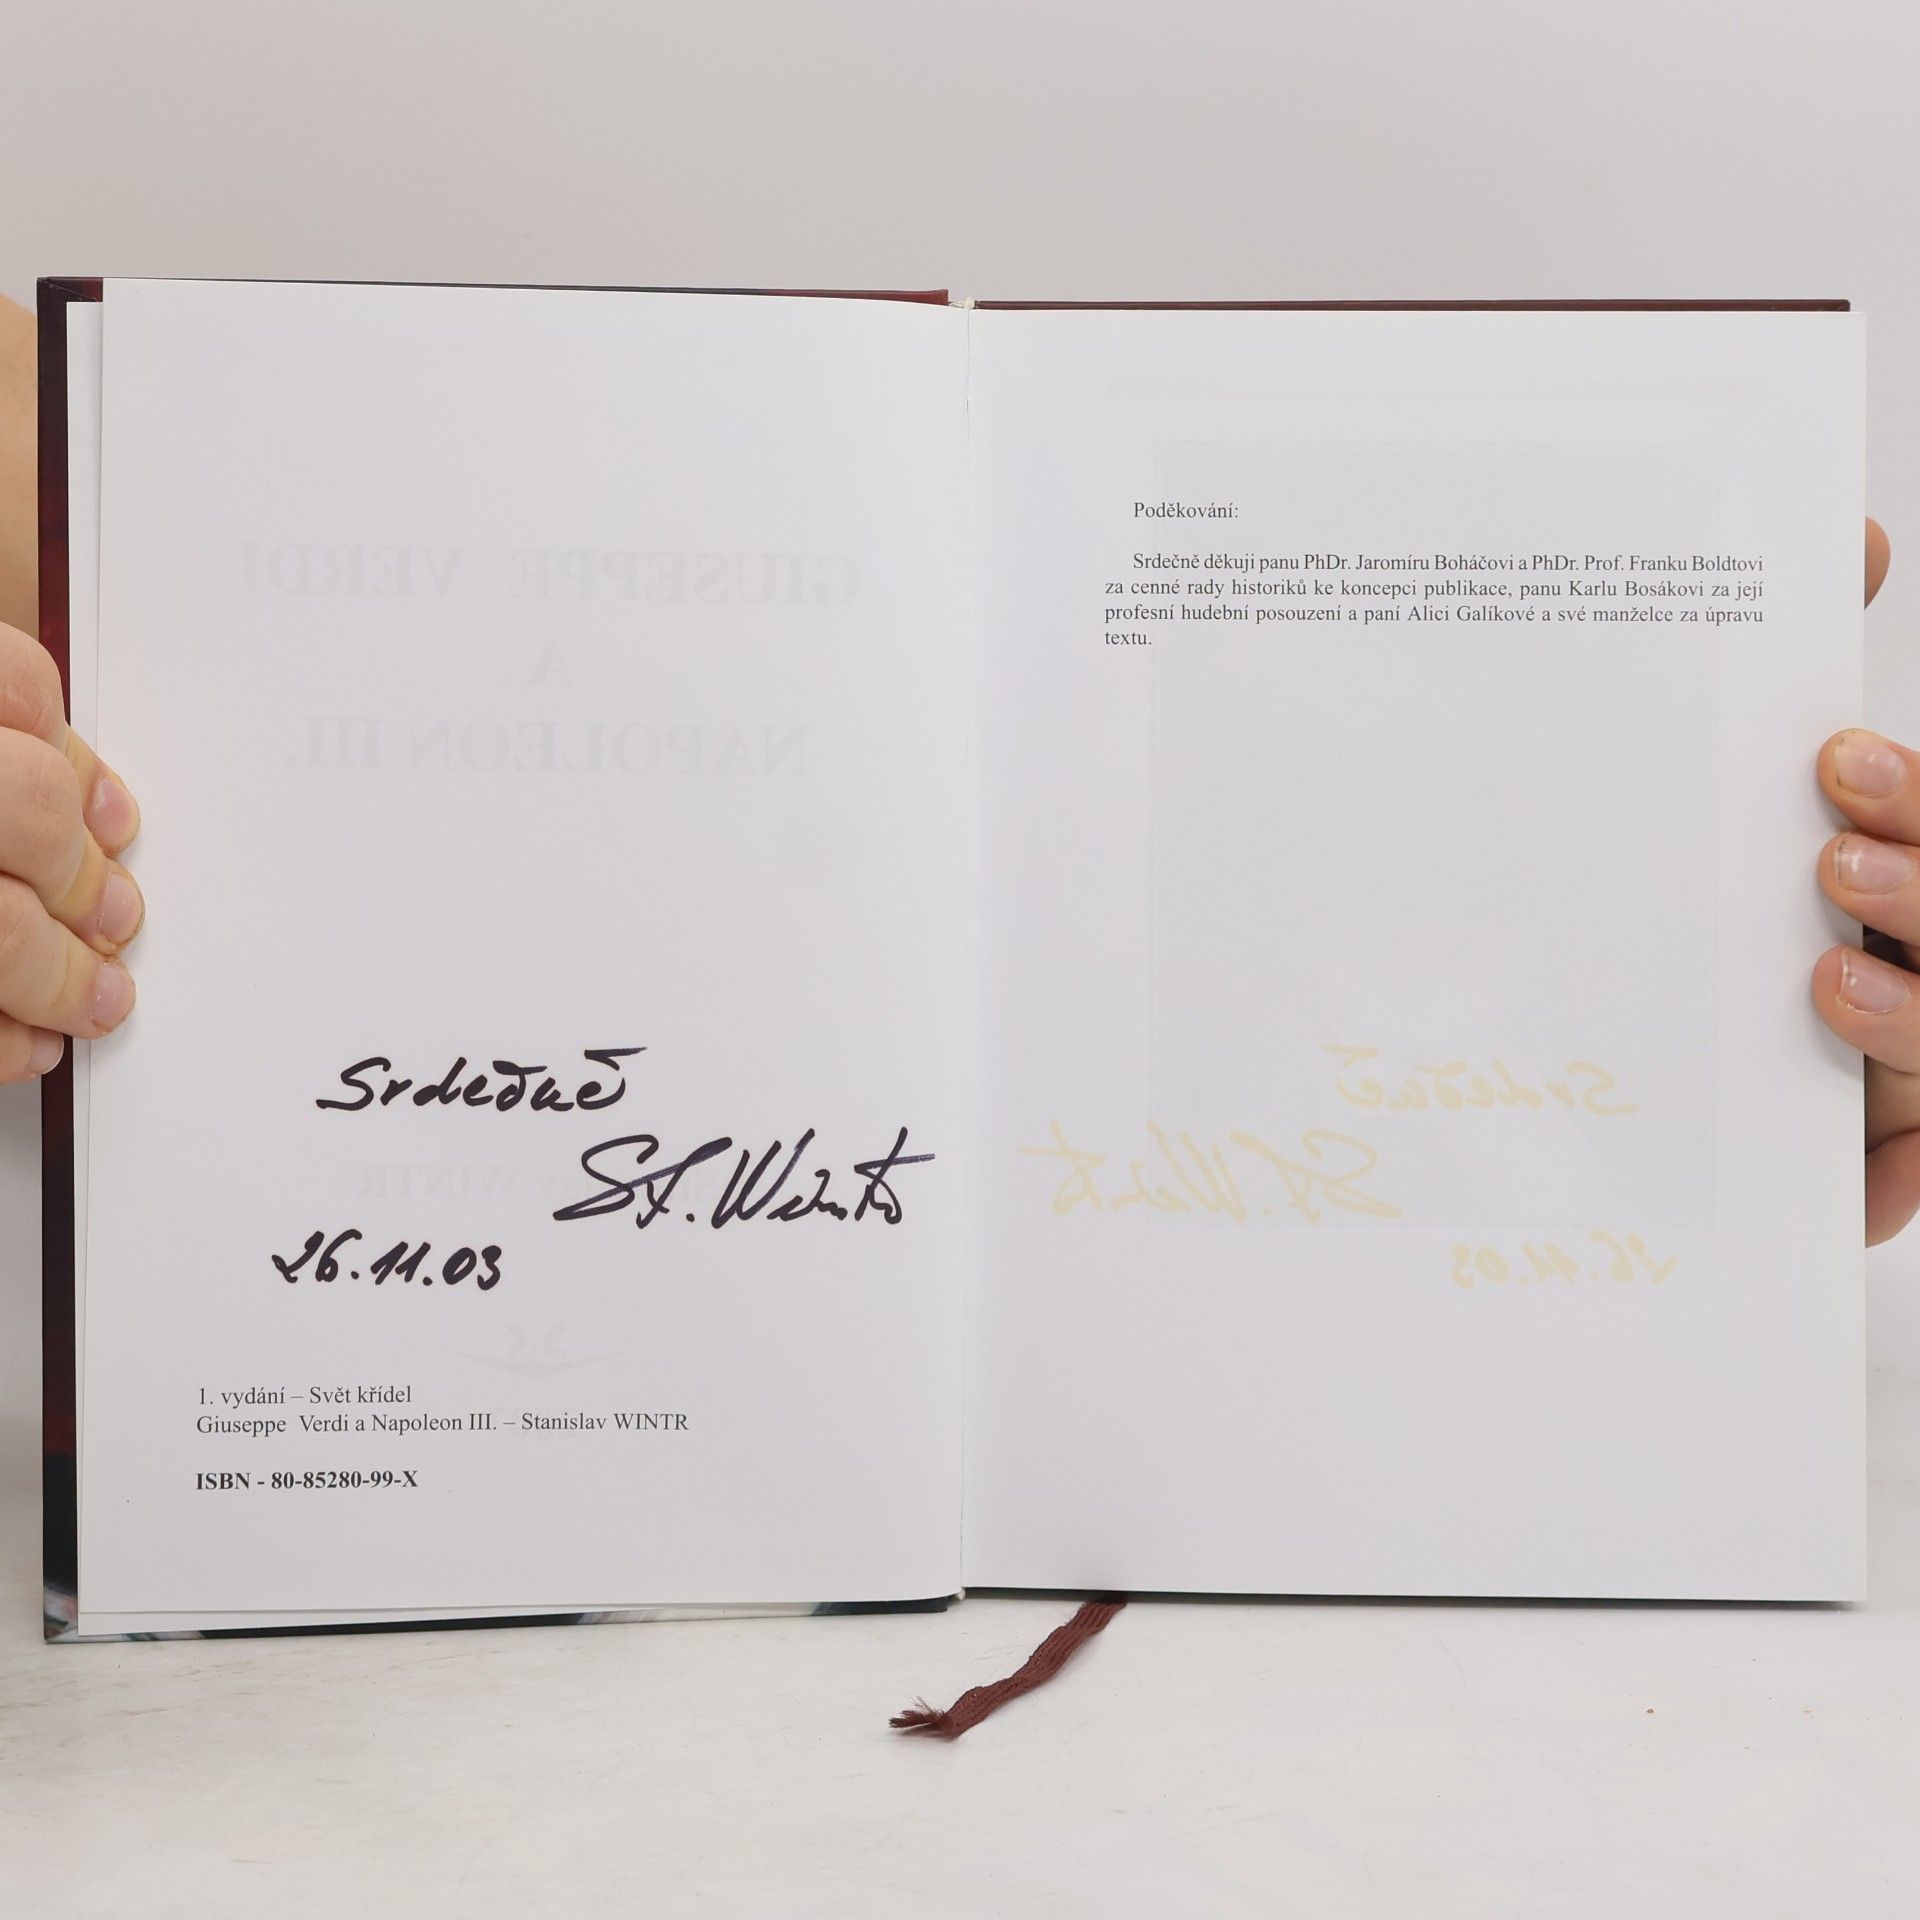 GIUSEPPE VERDI
A
NAPOLEON III.
Srdečně
St. Wintr
WINTR
26.11.03
1. vydání – Svět křídel
Giuseppe Verdi a Napoleon III. – Stanislav WINTR
ISBN - 80-85280-99-X
Poděkování:
Srdečně děkuji panu PhDr. Jaromíru Boháčovi a PhDr. Prof. Franku Boldtovi
za cenné rady historiků ke koncepci publikace, panu Karlu Bosákovi za její
profesní hudební posouzení a paní Alici Galíkové a své manželce za úpravu
textu.
Srdečně
St. Wintr
26.11.03